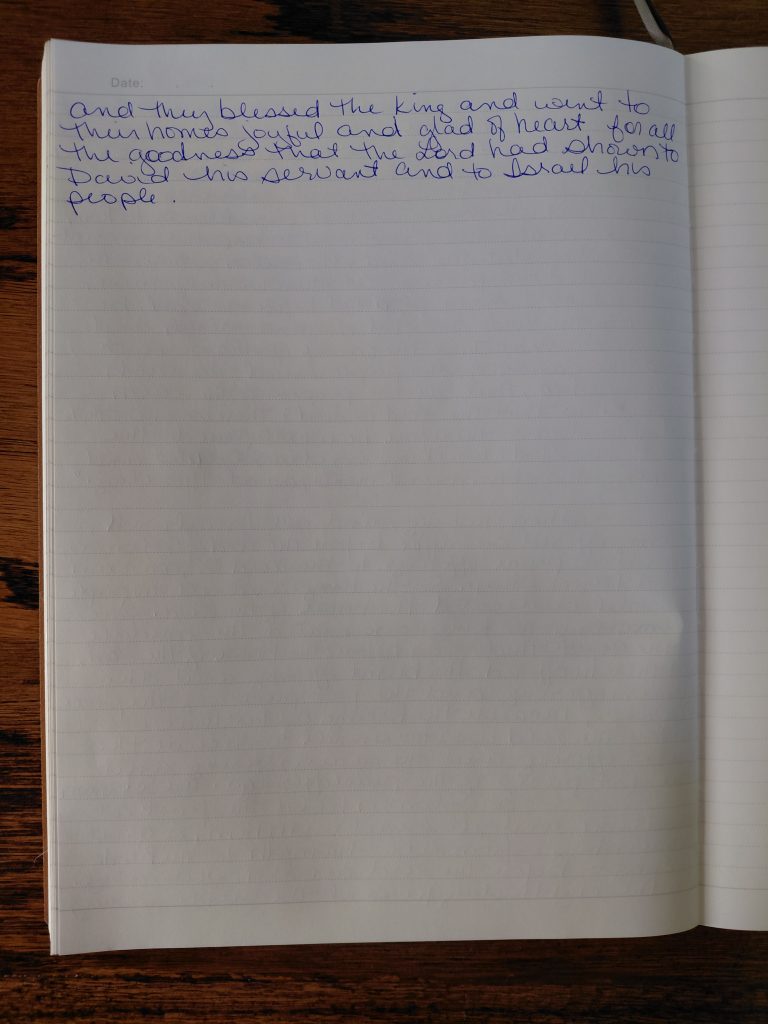 Date:
and they blessed the king and went to
their homes joyful and glad of heart for all
the goodness that the Lord had shown to
David his servant and to Israel his
people.